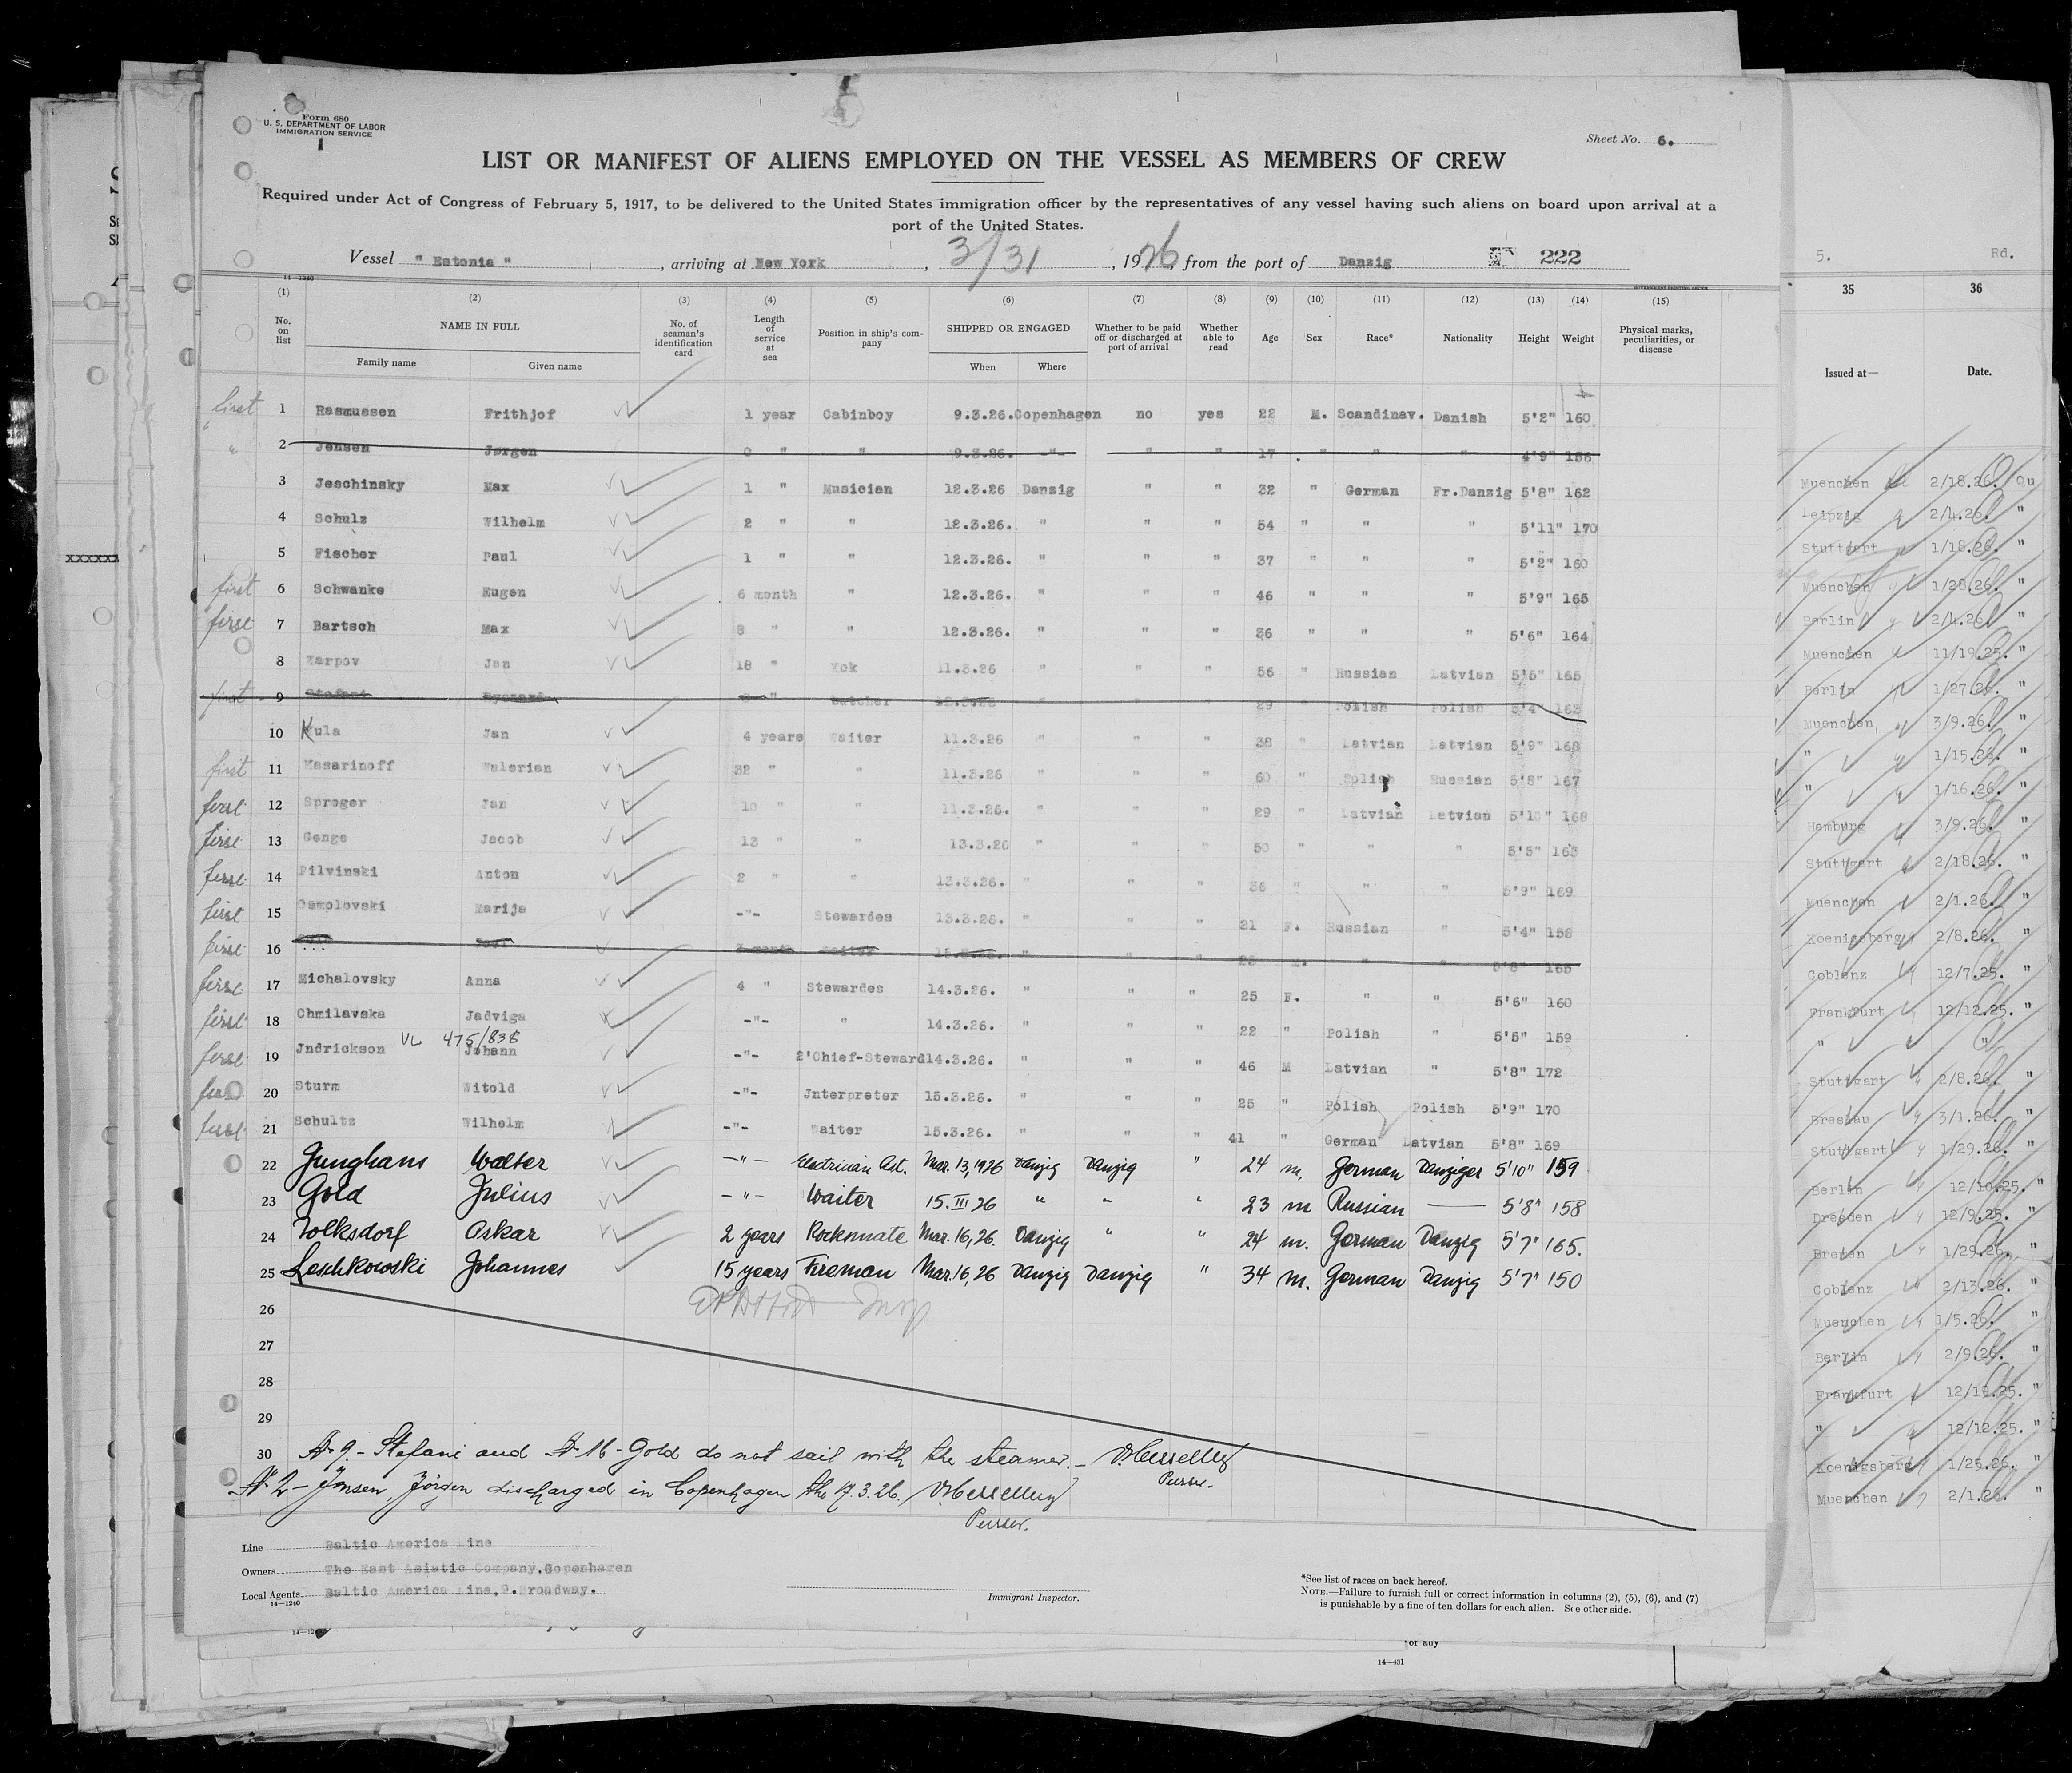 Form 680
U. S. DEPARTMENT OF LABOR
IMMIGRATION SERVICE
Sheet No. 6.
LIST OR MANIFEST OF ALIENS EMPLOYED ON THE VESSEL AS MEMBERS OF CREW
Required under Act of Congress of February 5, 1917, to be delivered to the United States immigration officer by the representatives of any vessel having such aliens on board upon arrival at a
port of the United States.
Vessel " Estonia " , arriving at New York , 3/31 , 1926, from the port of Danzig 222
14—1240
(1) (2) (3) (4) (5) (6) (7) (8) (9) (10) (11) (12) (13) (14) (15)
No. on list NAME IN FULL Family name Given name No. of seaman's identification card Length of service at sea Position in ship's company SHIPPED OR ENGAGED When Where Whether to be paid off or discharged at port of arrival Whether able to read Age Sex Race* Nationality Height Weight Physical marks, peculiarities, or disease
first 1 Rasmussen Frithjof 1 year Cabinboy 9.3.26. Copenhagen no yes 22 M. Scandinav. Danish 5'2" 160
" 2 Jensen Jørgen 0 " " 9.3.26. -"- " " 17 " " " 4'9" 156
3 Jeschinsky Max 1 " Musician 12.3.26 Danzig " " 32 " German Fr.Danzig 5'8" 162
4 Schulz Wilhelm 2 " " 12.3.26. " " " 54 " " " 5'11" 170
5 Fischer Paul 1 " " 12.3.26. " " " 37 " " " 5'2" 160
first 6 Schwanke Eugen 6 month " 12.3.26. " " " 46 " " " 5'9" 165
first 7 Bartsch Max 8 " " 12.3.26. " " " 36 " " " 5'6" 164
8 Karpov Jan 18 " Kok 11.3.26 " " " 56 " Russian Latvian 5'5" 165
first 9 Stefani Ryszard " Butcher 12.3.26 " " " 29 " Polish Polish 5'4" 163
10 Kula Jan 4 years Waiter 11.3.26 " " " 38 " Latvian Latvian 5'9" 168
first 11 Kasarinoff Valerian 32 " " 11.3.26 " " " 60 " Polish Russian 5'8" 167
first 12 Sproger Jan 10 " " 11.3.26. " " " 29 " Latvian Latvian 5'10" 168
first 13 Genge Jacob 13 " " 13.3.26 " " " 50 " " " 5'5" 163
first 14 Pilvinski Anton 2 " " 13.3.26. " " " 36 " " " 5'9" 169
first 15 Osmolovski Marija -"- Stewardes 13.3.26. " " " 21 F. Russian " 5'4" 158
first 16 3 month Waiter 13.3.26. " " " 23 M. " " 5'8" 165
first 17 Michalovsky Anna 4 " Stewardes 14.3.26. " " " 25 F. " " 5'6" 160
first 18 Chmilavska Jadviga -"- " 14.3.26. " " " 22 " Polish " 5'5" 159
VL 475/838
first 19 Jndrickson Johann -"- 2'Chief-Steward 14.3.26. " " " 46 M Latvian " 5'8" 172
20 Sturm Witold -"- Jnterpreter 15.3.26. " " " 25 " Polish Polish 5'9" 170
first 21 Schultz Wilhelm -"- Waiter 15.3.26. " " " 41 " German Latvian 5'8" 169
22 Junghans Walter -"- Electrician Ast. Mar. 13, 1926 Danzig Danzig " 24 m. German Danziger 5'10" 159
23 Gold Julius -"- Waiter 15.III 26 " " " 23 m Russian — 5'8" 158
24 Volksdorf Oskar 2 years Kocksmate Mar. 16, 26. Danzig " " 24 m. German Danzig 5'7" 165.
25 Leschkowski Johannes 15 years Fireman Mar. 16, 26 Danzig Danzig " 34 m. German Danzig 5'7" 150
26
27
28
29
30 № 9. - Stefani and № 16 - Gold do not sail with the steamer. -
Purser.
№ 2 - Jensen, Jörgen discharged in Copenhagen the 17.3.26.
Purser.
Line Baltic America Line
Owners The East Asiatic Company, Copenhagen
Local Agents Baltic America Line, 9. Broadway.
14—1240
Immigrant Inspector.
*See list of races on back hereof.
NOTE.—Failure to furnish full or correct information in columns (2), (5), (6), and (7)
is punishable by a fine of ten dollars for each alien. See other side.
or any
14—431
5. Rd.
35 36
Issued at— Date.
Muenchen 2/18.26. Qu
Leipzig 2/4.26. "
Stuttgart 1/18.26. "
Muenchen 1/28.26. "
Berlin 2/4.26. "
Muenchen 11/19.25. "
Berlin 1/27.26. "
Muenchen 3/9.26. "
" 1/15.26. "
" 1/16.26. "
Hamburg 3/9.26. "
Stuttgart 2/18.26. "
Muenchen 2/1.26. "
Koenigsberg 2/8.26. "
Coblenz 12/7.25. "
Frankfurt 12/12.25. "
" " "
Stuttgart 2/8.26. "
Breslau 3/1.26. "
Stuttgart 1/29.26. "
Berlin 12/10.25. "
Dresden 12/9.25. "
Bremen 1/29.26. "
Coblenz 2/13.26. "
Muenchen 1/5.26. "
Berlin 2/9.26. "
Frankfurt 12/19.25. "
" 12/12.25. "
Koenigsberg 1/25.26. "
Muenchen 2/1.26. "